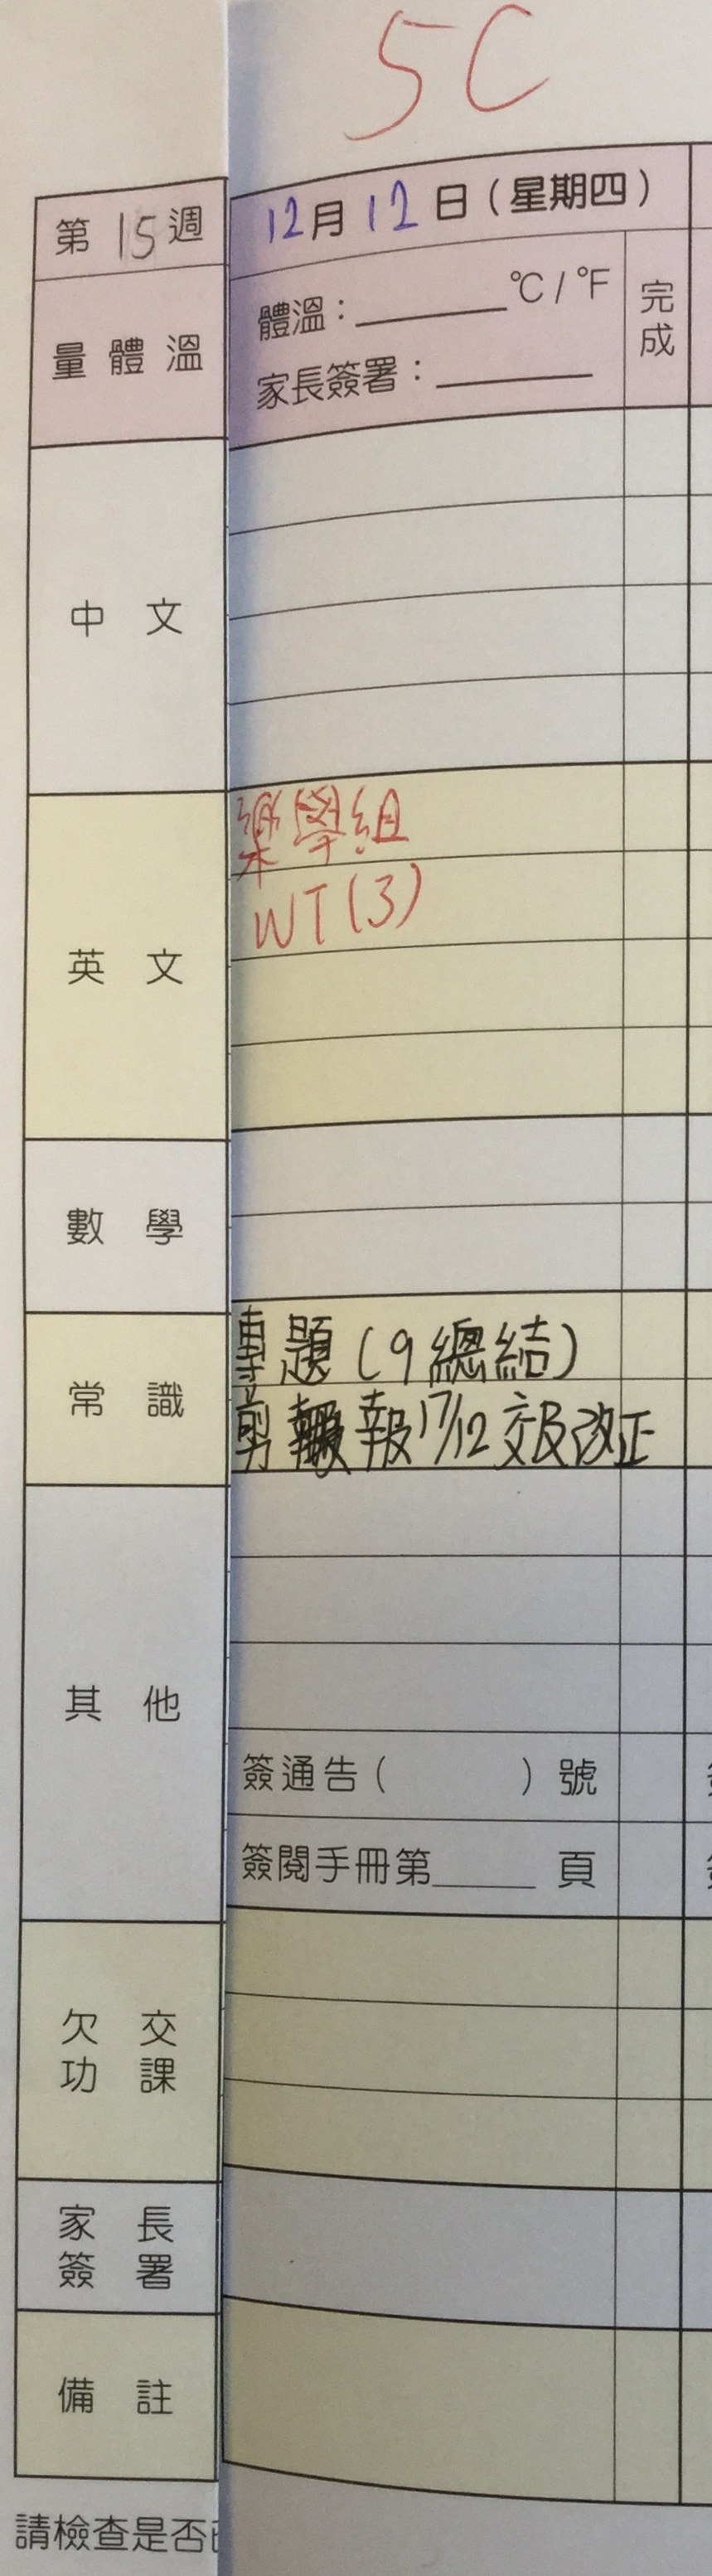 5C
第15週
12月12日(星期四)
量體溫
體溫:______°C/°F
家長簽署:______
完成
中文
英文
樂學組
WT(3)
數學
常識
專題(9總結)
剪報17/12交及改正
其他
簽通告( )號
簽閱手冊第____頁
欠交功課
家長簽署
備註
請檢查是否已